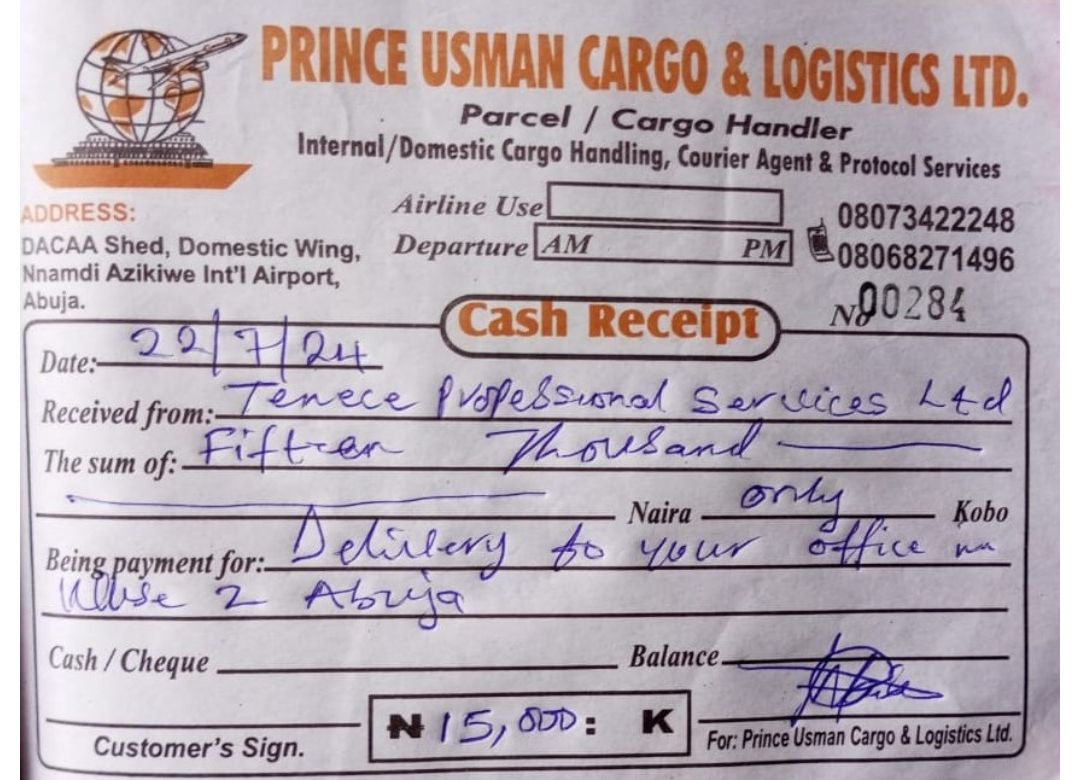 PRINCE USMAN CARGO & LOGISTICS LTD.
Parcel / Cargo Handler
Internal/Domestic Cargo Handling, Courier Agent & Protocol Services
ADDRESS:
DACAA Shed, Domestic Wing,
Nnamdi Azikiwe Int'l Airport,
Abuja.
Airline Use
Departure AM PM
08073422248
08068271496
No 00284
Cash Receipt
Date: 22/7/24
Received from: Tenece Professional Services Ltd
The sum of: Fifteen Thousand
Naira only Kobo
Being payment for: Delivery to your office
Wuse 2 Abuja
Cash / Cheque Balance
₦ 15,000: K
Customer's Sign.
For: Prince Usman Cargo & Logistics Ltd.